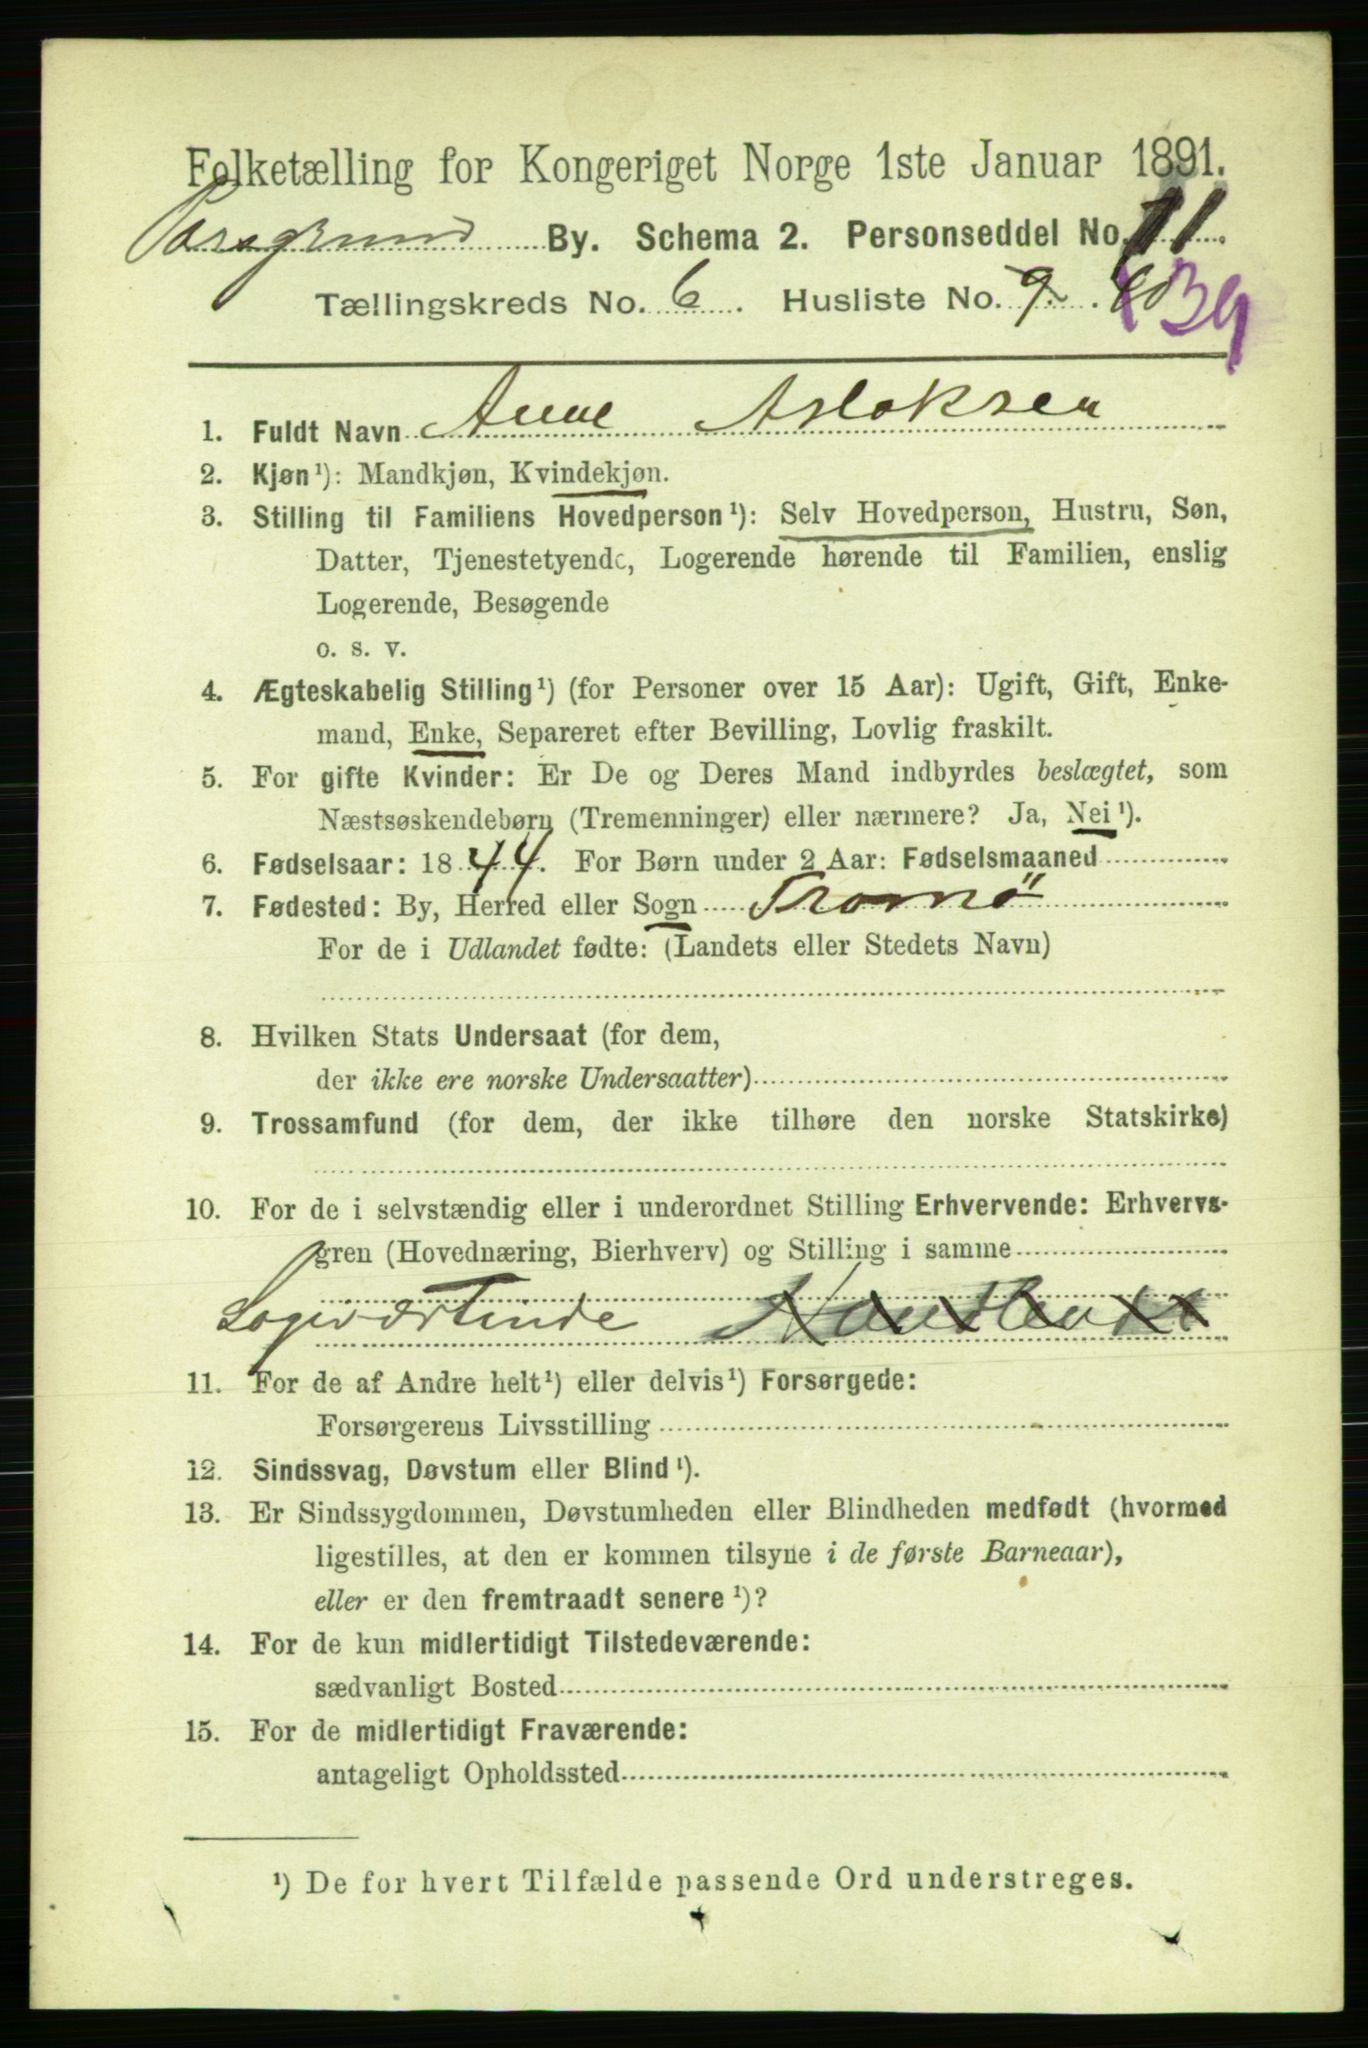 Folketælling for Kongeriget Norge 1ste Januar 1891.
Porsgrund By. Schema 2. Personseddel No. 11
Tællingskreds No. 6. Husliste No. 9.
1. Fuldt Navn Anne Aslaksen
2. Kjøn¹): Mandkjøn, Kvindekjøn.
3. Stilling til Familiens Hovedperson¹): Selv Hovedperson, Hustru, Søn,
Datter, Tjenestetyende, Logerende hørende til Familien, enslig
Logerende, Besøgende
o. s. v.
4. Ægteskabelig Stilling¹) (for Personer over 15 Aar): Ugift, Gift, Enke-
mand, Enke, Separeret efter Bevilling, Lovlig fraskilt.
5. For gifte Kvinder: Er De og Deres Mand indbyrdes beslægtet, som
Næstsøskendebørn (Tremenninger) eller nærmere? Ja, Nei¹).
6. Fødselsaar: 1844. For Børn under 2 Aar: Fødselsmaaned
7. Fødested: By, Herred eller Sogn Tromø
For de i Udlandet fødte: (Landets eller Stedets Navn)
8. Hvilken Stats Undersaat (for dem,
der ikke ere norske Undersaatter)
9. Trossamfund (for dem, der ikke tilhøre den norske Statskirke)
10. For de i selvstændig eller i underordnet Stilling Erhvervende: Erhvervs-
gren (Hovednæring, Bierhverv) og Stilling i samme
Logiværtinde
11. For de af Andre helt¹) eller delvis¹) Forsørgede:
Forsørgerens Livsstilling
12. Sindssvag, Døvstum eller Blind¹).
13. Er Sindssygdommen, Døvstumheden eller Blindheden medfødt (hvormed
ligestilles, at den er kommen tilsyne i de første Barneaar),
eller er den fremtraadt senere¹)?
14. For de kun midlertidigt Tilstedeværende:
sædvanligt Bosted
15. For de midlertidigt Fraværende:
antageligt Opholdssted
¹) De for hvert Tilfælde passende Ord understreges.